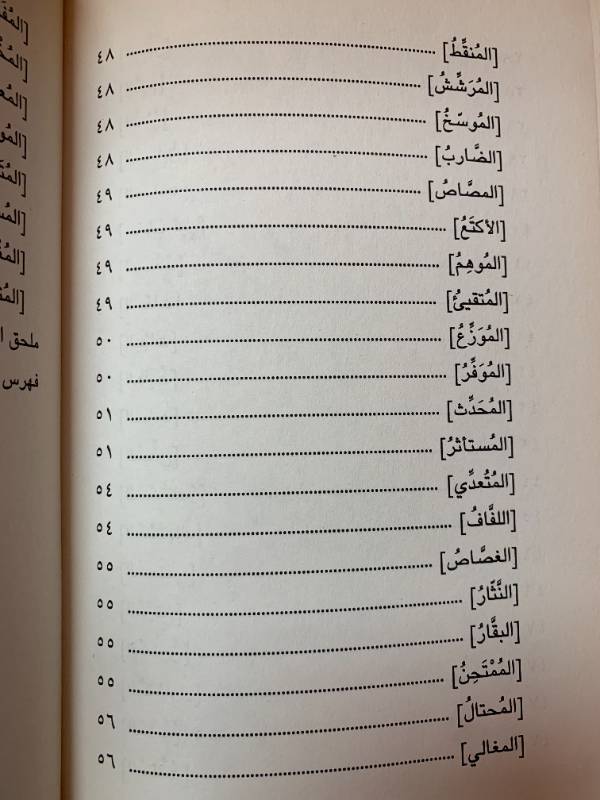 [المُنقِّطُ] ٤٨
[المُرَشِّشُ] ٤٨
[المُوسّخُ] ٤٨
[الضَّاربُ] ٤٨
[المصَّاصُ] ٤٩
[الأكتَعُ] ٤٩
[المُوهِمُ] ٤٩
[المُتقيئُ] ٤٩
[المُوَزِّعُ] ٥٠
[المُوَفِّرُ] ٥٠
[المُحَدِّث] ٥١
[المُستأثرُ] ٥١
[المُتُعدِّي] ٥٤
[اللفَّافُ] ٥٤
[الغصَّاصُ] ٥٥
[النَّثَّارُ] ٥٥
[البقَّارُ] ٥٥
[المُمْتَحِنُ] ٥٥
[المُحتالُ] ٥٦
[المغالي] ٥٦
ملحق
فهرس